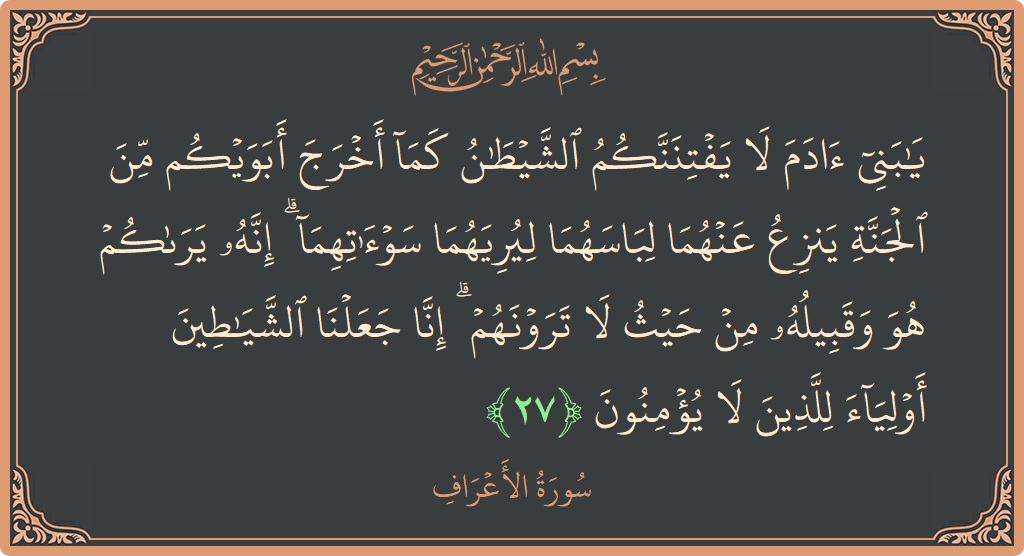 بِسْمِ اللَّهِ الرَّحْمَٰنِ الرَّحِيمِ
يَـٰبَنِىٓ ءَادَمَ لَا يَفْتِنَنَّكُمُ ٱلشَّيْطَـٰنُ كَمَآ أَخْرَجَ أَبَوَيْكُم مِّنَ
ٱلْجَنَّةِ يَنزِعُ عَنْهُمَا لِبَاسَهُمَا لِيُرِيَهُمَا سَوْءَٰتِهِمَآ ۗ إِنَّهُۥ يَرَىٰكُمْ
هُوَ وَقَبِيلُهُۥ مِنْ حَيْثُ لَا تَرَوْنَهُمْ ۗ إِنَّا جَعَلْنَا ٱلشَّيَـٰطِينَ
أَوْلِيَآءَ لِلَّذِينَ لَا يُؤْمِنُونَ ﴿٢٧﴾
سُورَةُ الأَعْرَافِ